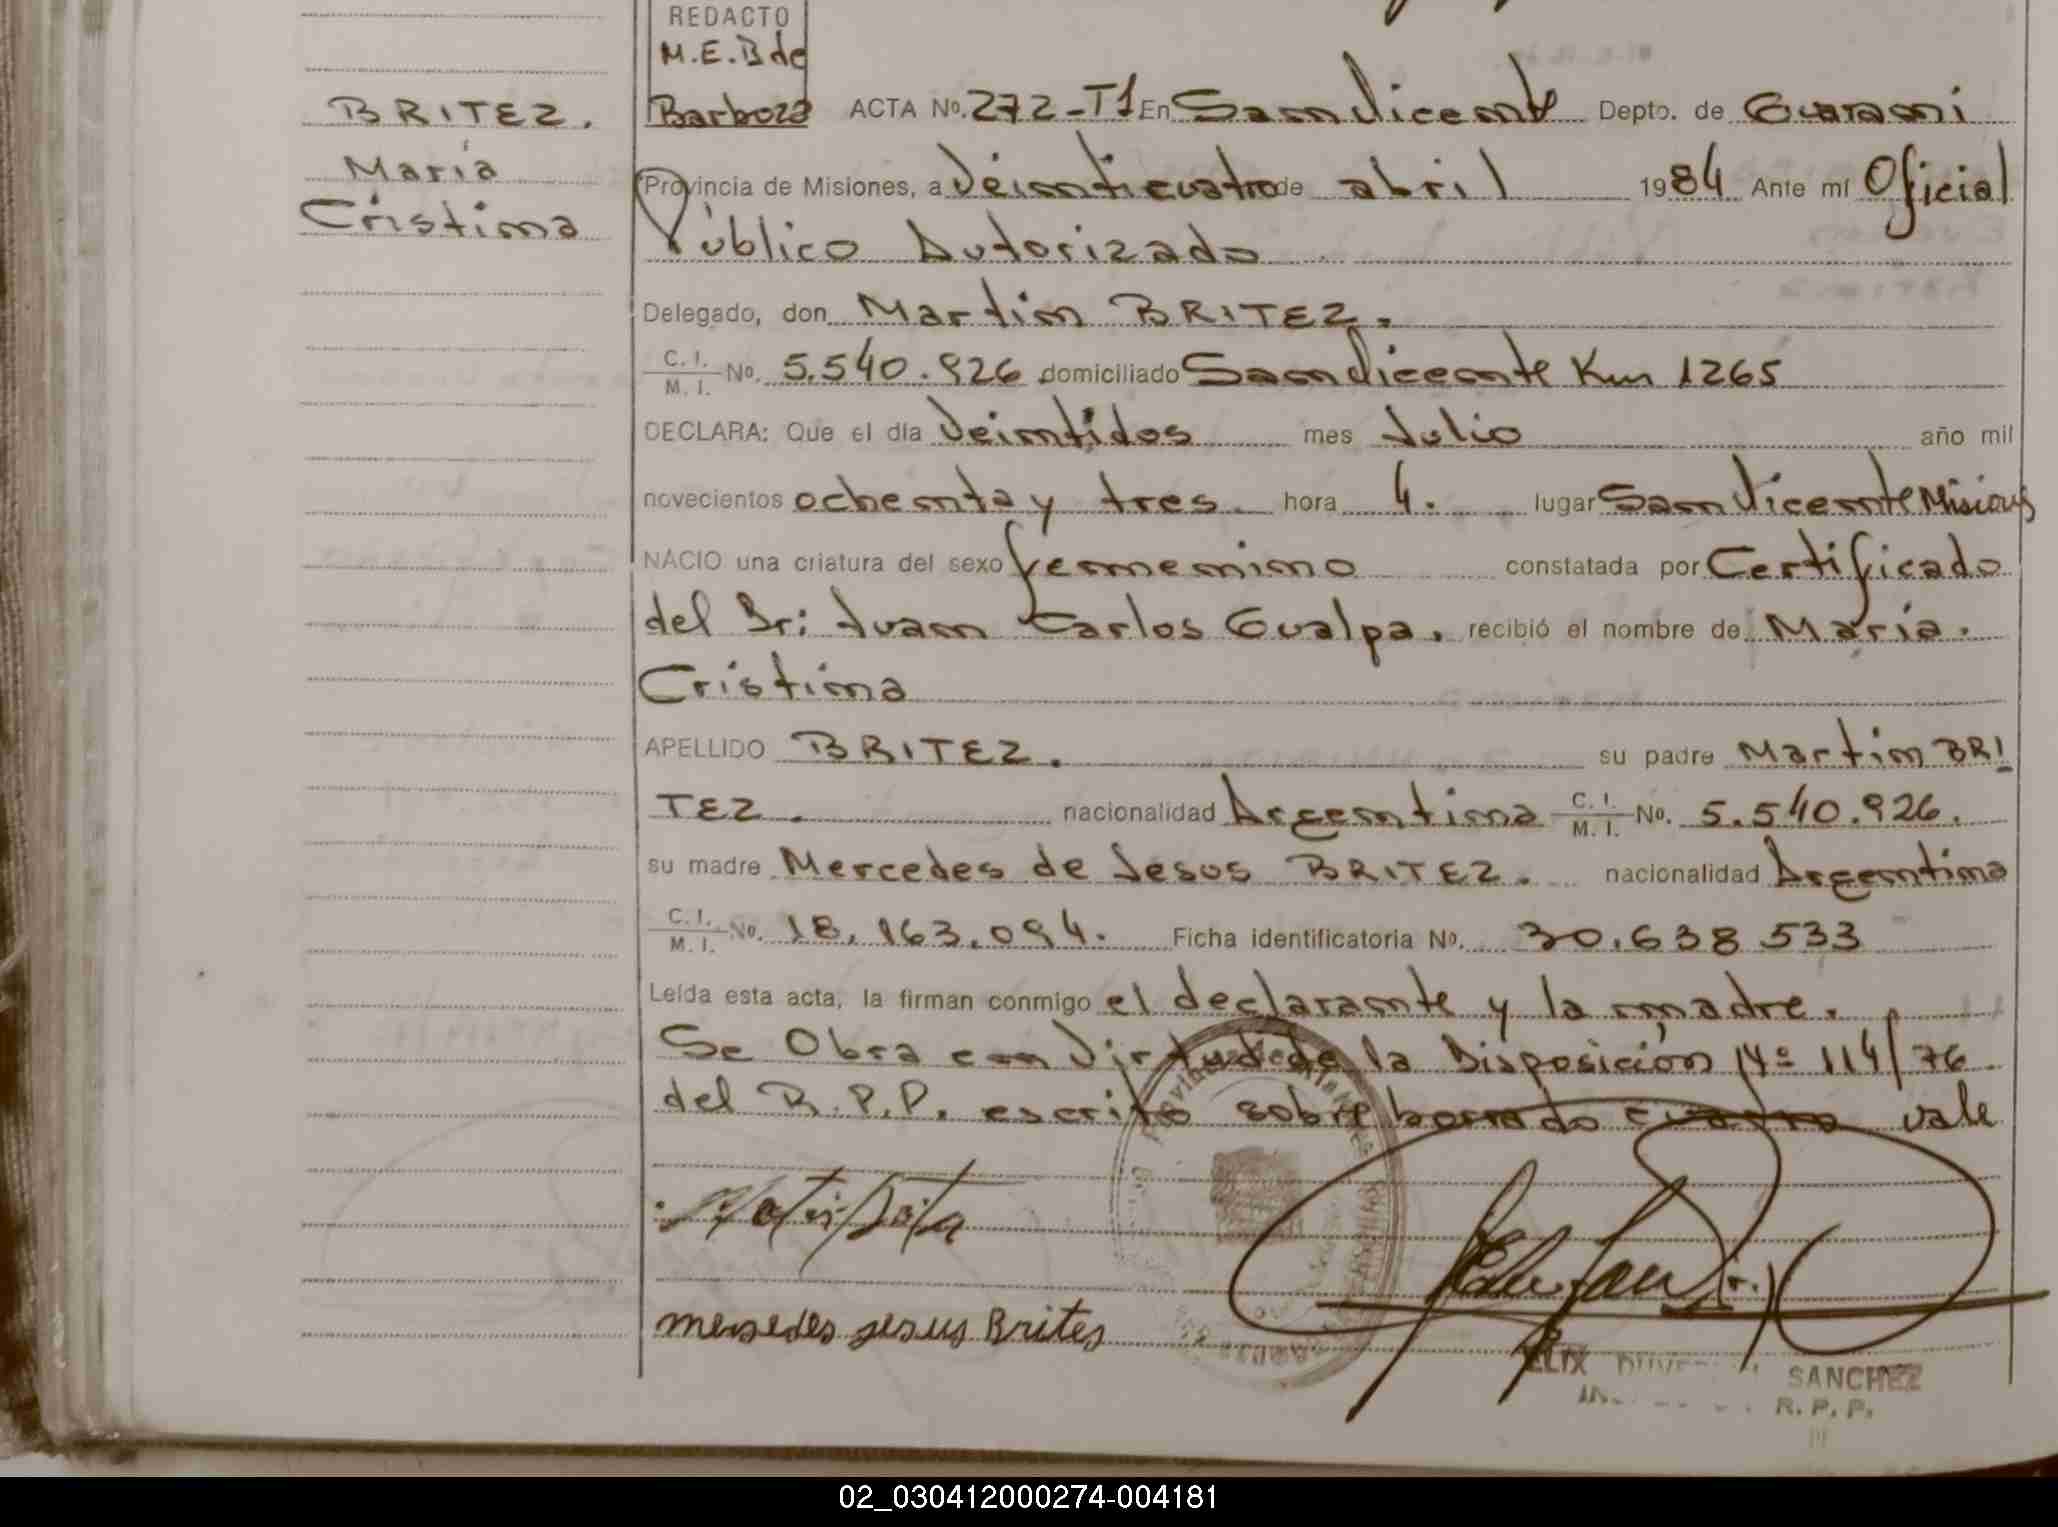 REDACTO
M.E.B de
Barboza
BRITEZ.
María
Cristina
ACTA Nº. 272-T1 En San Vicente Depto. de Guarani
Provincia de Misiones, a Veinticuatro de abril 1984 Ante mí Oficial
Público Autorizado
Delegado, don Martin BRITEZ.
C. I. / M. I. Nº. 5.540.926 domiciliado San Vicente Km 1265
DECLARA: Que el día Veintidos mes Julio año mil
novecientos ochenta y tres hora 4. lugar San Vicente Misiones
NACIO una criatura del sexo femenino constatada por Certificado
del Dr: Juan Carlos Gualpa, recibió el nombre de María.
Cristina
APELLIDO BRITEZ. su padre Martin BRI
TEZ. nacionalidad Argentina C. I. / M. I. Nº. 5.540.926.
su madre Mercedes de Jesus BRITEZ. nacionalidad Argentina
C. I. / M. I. Nº. 18.163.094. Ficha identificatoria Nº. 30.638 533
Leída esta acta, la firman conmigo el declarante y la madre.
Se Obra en Virtud de la Disposición Nº 114/76
del R.P.P. escrito sobre borrado cuatro vale
mersedes jesus Brites
SANCHEZ
R. P. P.
02_030412000274-004181